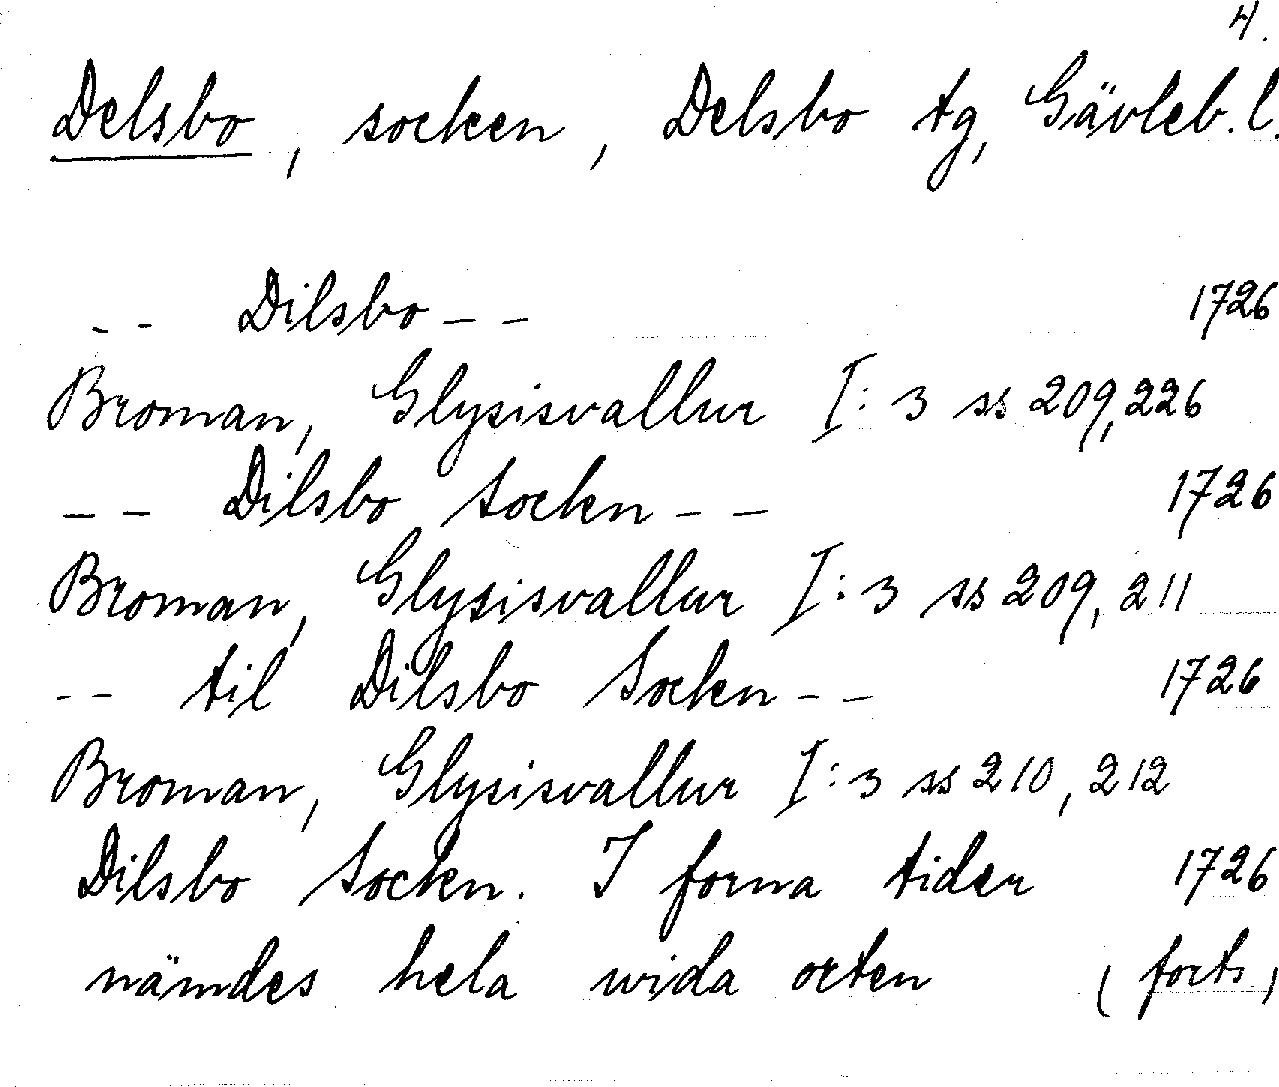 4.
Delsbo, socken, Delsbo tg, Gävleb. l.
-- Dilsbo -- 1726
Broman, Glysisvallur I:3 ss 209, 226
-- Dilsbo Sockn -- 1726
Broman, Glysisvallur I:3 ss 209, 211
-- til Dilsbo Sockn -- 1726
Broman, Glysisvallur I:3 ss 210, 212
Dilsbo Sockn. I forna tider 1726
nämdes hela wida orten (forts.)